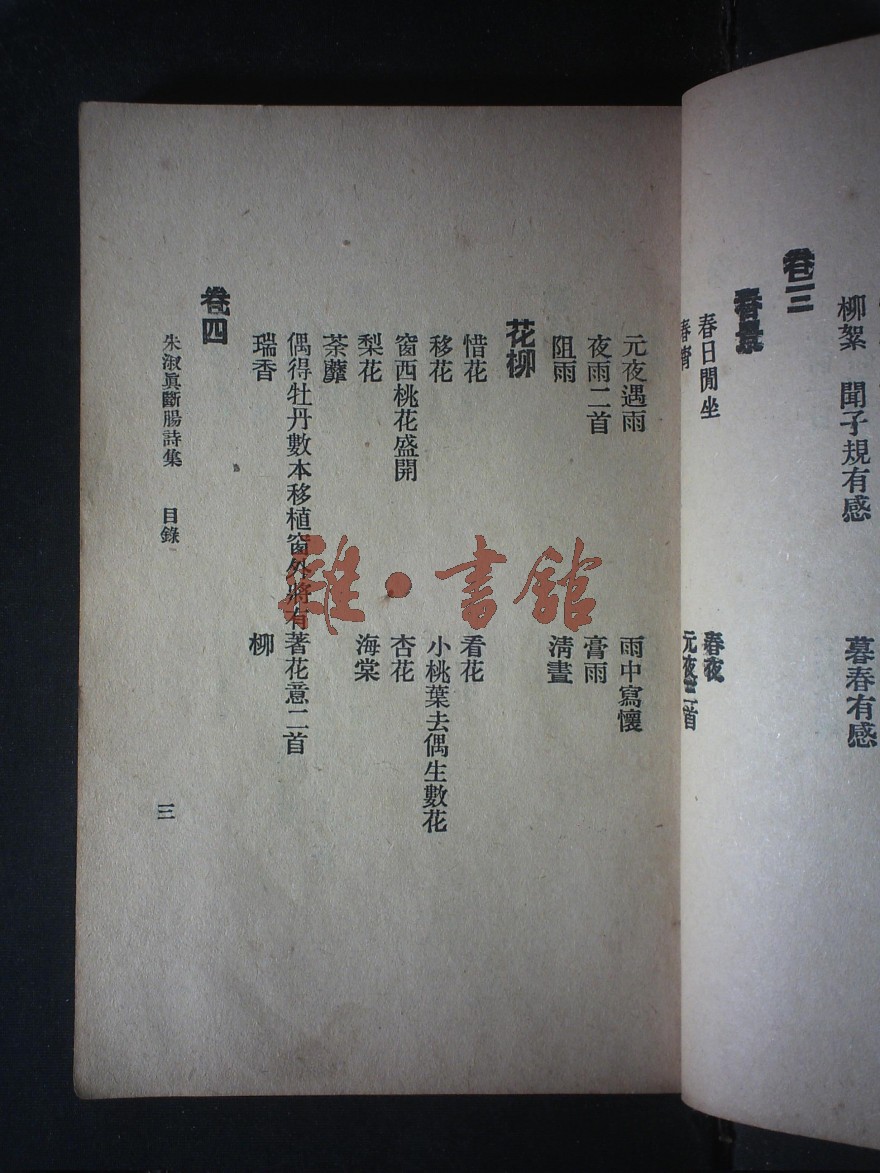 柳絮 聞子規有感 暮春有感
卷三
春景
春日閒坐 春夜
春宵 元夜三首
元夜遇雨 雨中寫懷
夜雨二首 膏雨
阻雨 清晝
花柳
惜花 看花
移花 小桃葉去偶生數花
窗西桃花盛開 杏花
梨花 海棠
荼蘼
偶得牡丹數本移植窗外將有著花意二首
瑞香 柳
卷四
朱淑真斷腸詩集 目錄 三
雜·書館